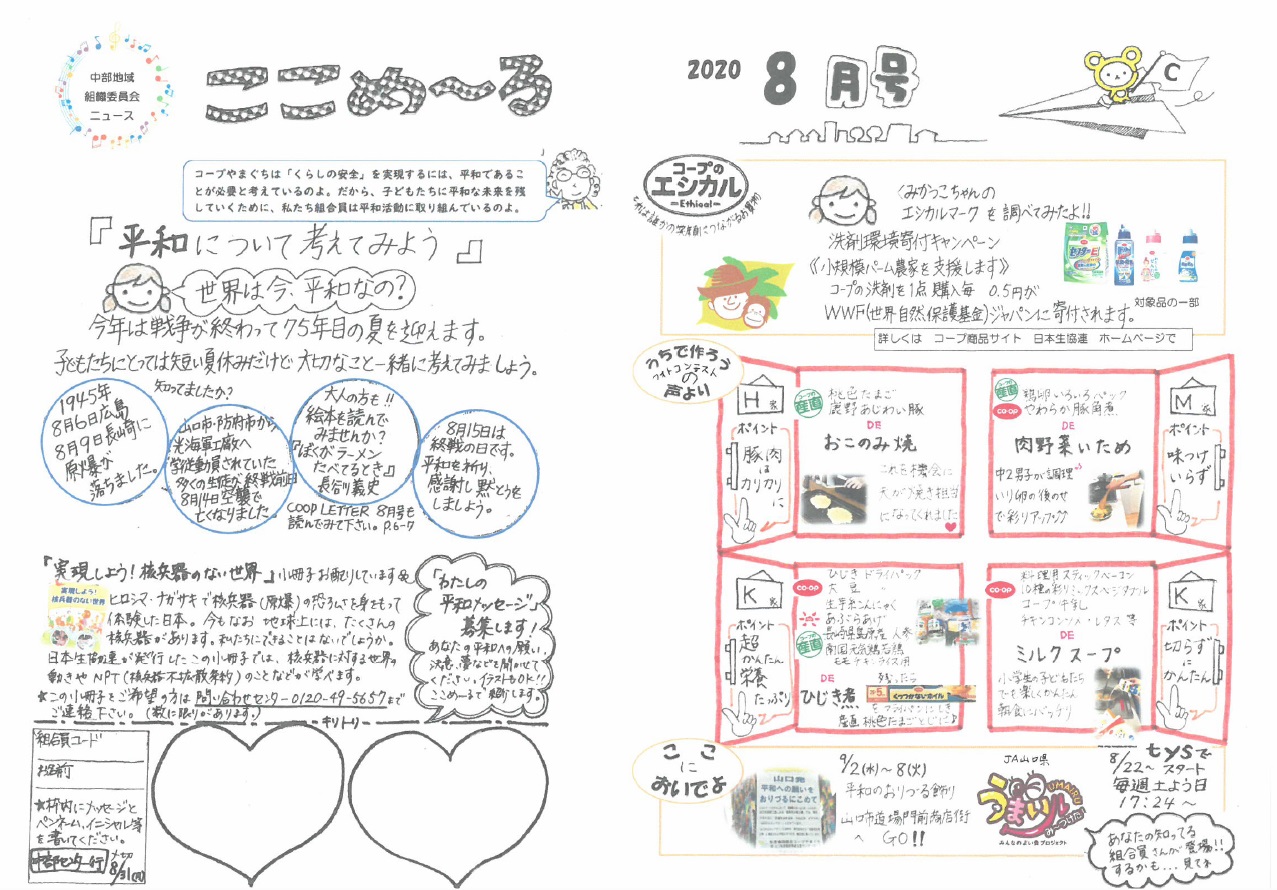 中部地域
組織委員会
ニュース
ここめ〜る
2020 8月号
C
コープやまぐちは「くらしの安全」を実現するには、平和であるこ
とが必要と考えているのよ。だから、子どもたちに平和な未来を残
していくために、私たち組合員は平和活動に取り組んでいるのよ。
『平和について考えてみよう』
世界は今、平和なの?
今年は戦争が終わって75年目の夏を迎えます。
子どもたちにとっては短い夏休みだけど大切なこと一緒に考えてみましょう。
知ってましたか?
1945年
8月6日広島
8月9日長崎に
原爆が
落ちました。
山口市・防府市から
光海軍工廠へ
学徒動員されていた
多くの生徒が終戦前日
8月14日空襲で
亡くなりました。
大人の方も!!
絵本を読んで
みませんか?
『ぼくがラーメン
たべてるとき』
長谷川義史
COOP LETTER 8月号も
読んでみて下さい。P.6-7
8月15日は
終戦の日です。
平和を祈り、
感謝し黙とうを
しましょう。
『実現しよう!核兵器のない世界』小冊子お配りしています
実現しよう!
核兵器のない世界
ヒロシマ・ナガサキで核兵器(原爆)の恐ろしさを身をもって
体験した日本。今もなお 地球上には、たくさんの
核兵器があります。私たちにできることはないでしょうか。
日本生協連が発行したこの小冊子では、核兵器に対する世界の
動きやNPT(核兵器不拡散条約)のことなどが学べます。
★この小冊子をご希望の方は問い合わせセンター0120-49-5657まで
ご連絡下さい。(数に限りがあります。)
「わたしの
平和メッセージ」
募集します!
あなたの平和への願い、
決意、夢などを聞かせて
ください。イラストもOK!!
ここめーるで紹介します。
キリトリ
組合員コード
お名前
★枠内にメッセージと
ペンネーム、イニシャル等
を書いてください。
中部センター行
〆切
8/31(月)
コープの
エシカル
Ethical
それは誰かの笑顔につながるお買物
くみかっこちゃんの
エシカルマークを調べてみたよ!!
洗剤環境寄付キャンペーン
《小規模パーム農家を支援します》
コープの洗剤を1点購入毎 0.5円が
WWF(世界自然保護基金)ジャパンに寄付されます。
セフターE
対象品の一部
詳しくは コープ商品サイト 日本生協連 ホームページで
うちで作ろう
フォトコンテスト
の
声より
H家
ポイント
豚肉は
カリカリに
産直
桃色たまご
鹿野あじわい豚
DE
おこのみ焼
これを機会に
夫がお焼き担当
になってくれました
産直
鶏卵いろいろパック
CO・OP
やわらか豚角煮
DE
肉野菜いため
中2男子が調理
いり卵の後のせ
で彩りアップ
M家
ポイント
味つけ
いらず
K家
ポイント
超かんたん
栄養
たっぷり
CO・OP
ひじきドライパック
大豆 〃
生芋糸こんにゃく
あぶらあげ
産直
長崎県島原産人参
南国元気鶏若鶏
モモチキンライス用
DE
ひじき煮
残ったら
くっつかないホイル
をフライパンにしき
産直桃色たまごとじに♪
CO・OP
料理用スティックベーコン
10種の彩りミックスベジタブル
コープ牛乳
チキンコンソメ・レタス等
DE
ミルクスープ
小学生の子どもたち
でも楽しくかんたん
朝食にバッチリ
K家
ポイント
切らずに
かんたん
ここ
に
おいでよ
山口発
平和への願いを
おりづるにこめて
9/2(水)〜8(火)
平和のおりづる飾り
山口市道場門前商店街
へ GO!!
JA山口県
UMAIRU
うまいル
みんなのよい食プロジェクト
tysで
8/22〜スタート
毎週土よう日
17:24〜
あなたの知ってる
組合員さんが登場!!
するかも…見てネ